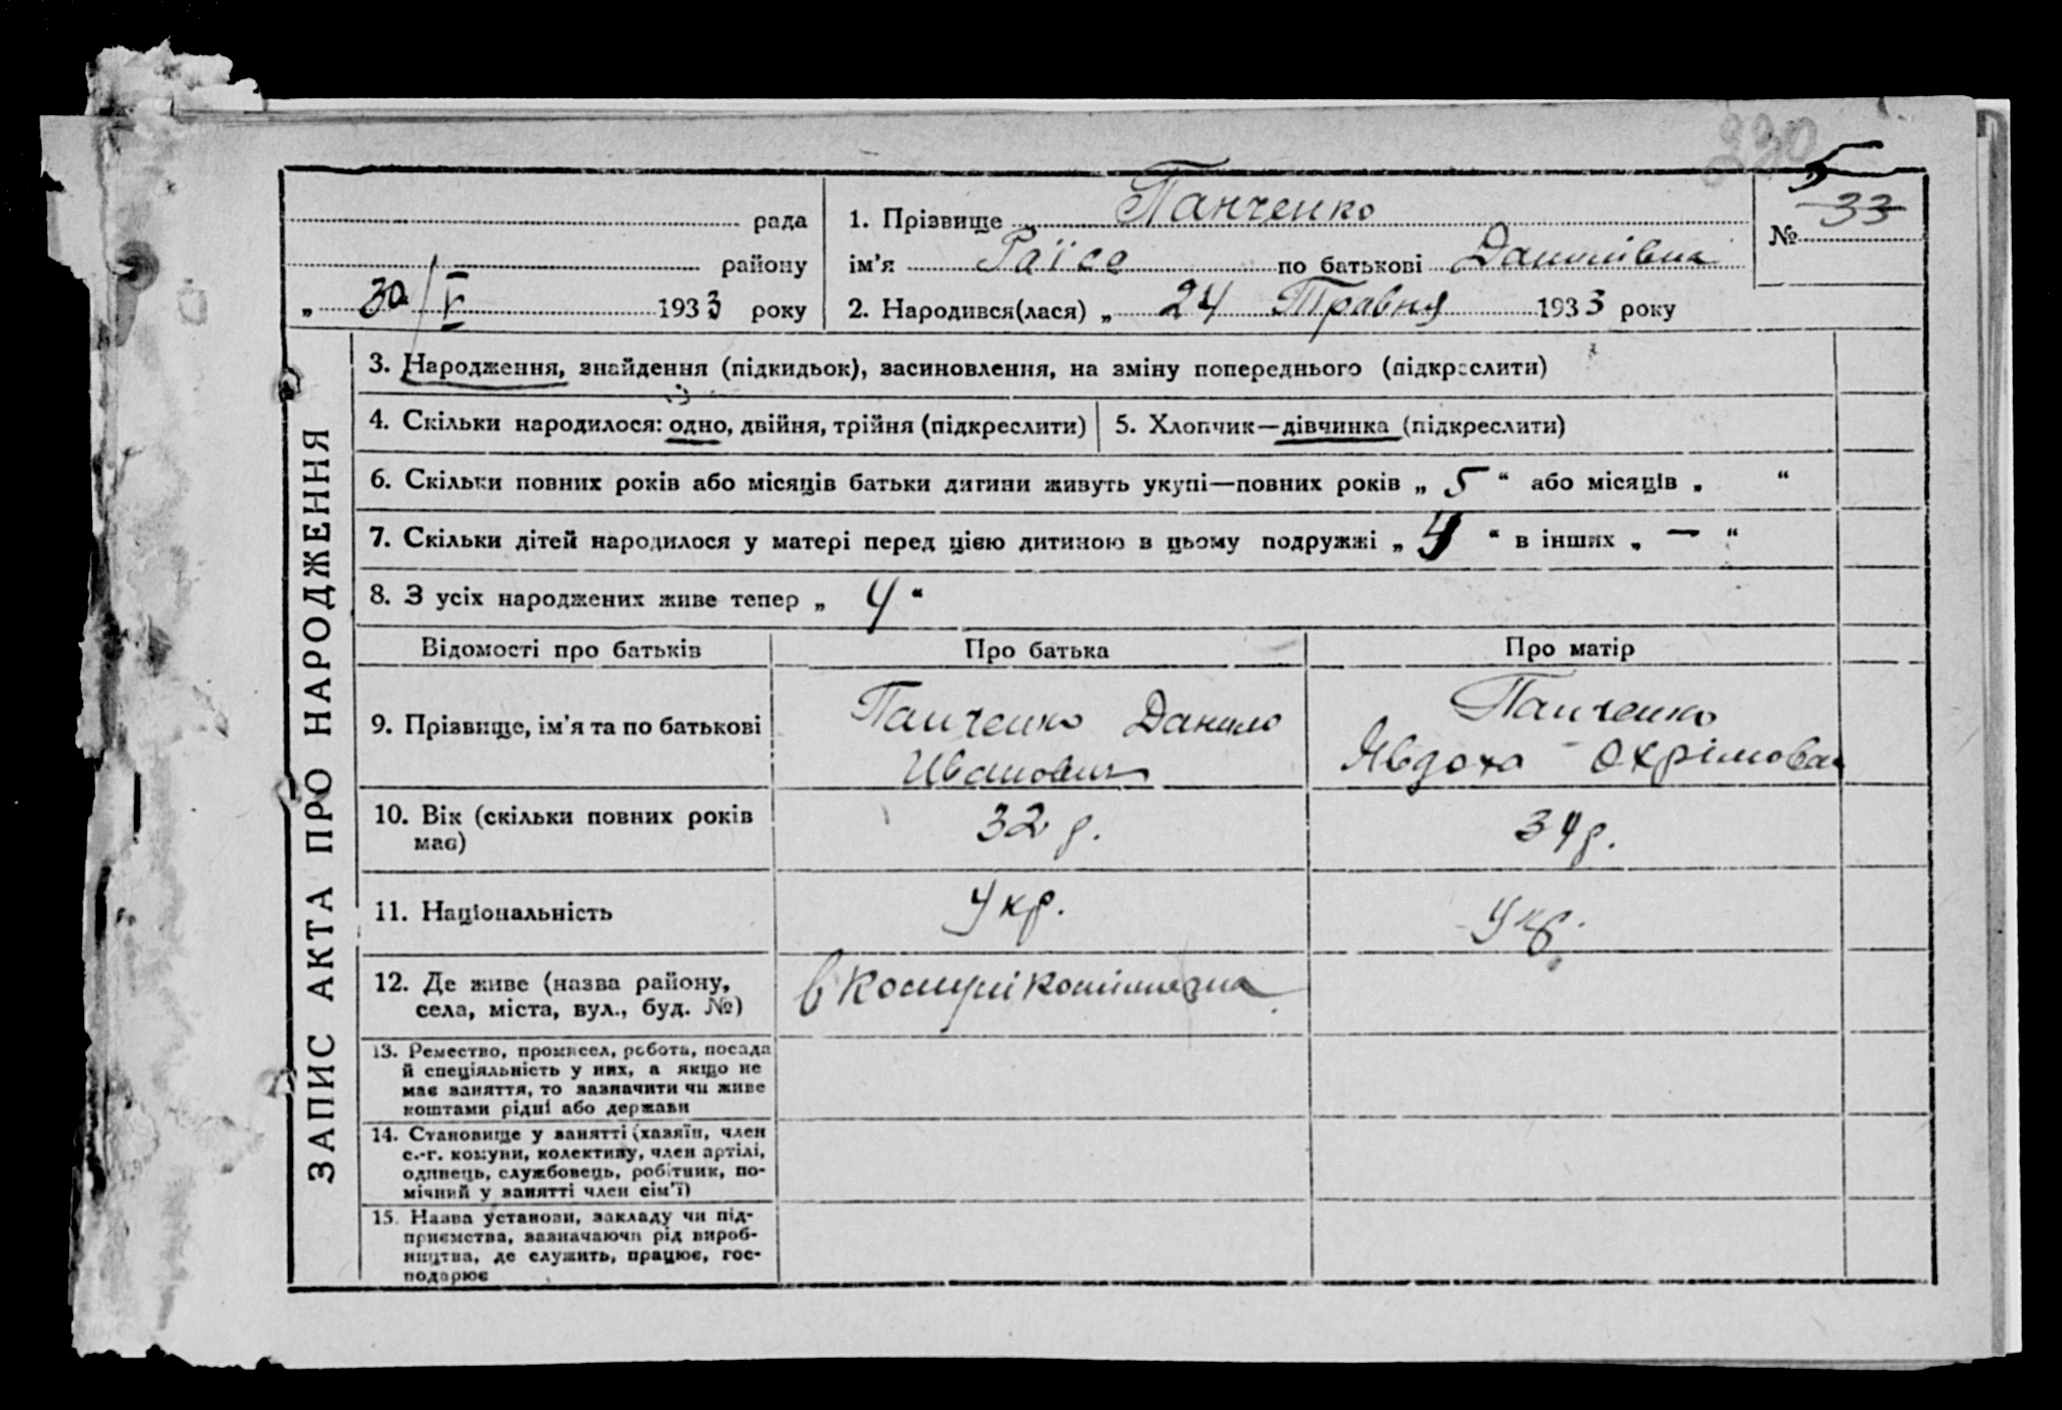 330
5
рада
району
„ 30/V 1933 року
1. Прізвище Панченко
ім'я Раїса по батькові Данилівна
2. Народився(лася) „ 24 Травня 1933 року
№ 33
ЗАПИС АКТА ПРО НАРОДЖЕННЯ
3. Народження, знайдення (підкидьок), засиновлення, на зміну попереднього (підкреслити)
4. Скільки народилося: одно, двійня, трійня (підкреслити)
5. Хлопчик—дівчинка (підкреслити)
6. Скільки повних років або місяців батьки дитини живуть укупі—повних років „ 5 “ або місяців „ “
7. Скільки дітей народилося у матері перед цією дитиною в цьому подружжі „ 4 “ в інших „ — “
8. З усіх народжених живе тепер „ 4 “
Відомості про батьків
Про батька
Про матір
9. Прізвище, ім'я та по батькові
Панченко Данило
Иванович
Панченко
Явдоха Охрімовна
10. Вік (скільки повних років
має)
32 р.
34 р.
11. Національність
Укр.
Укр.
12. Де живе (назва району,
села, міста, вул., буд. №)
в
13. Ремество, промисел, робота, посада
й спеціяльність у них, а якщо не
має заняття, то зазначити чи живе
коштами рідні або держави
14. Становище у занятті (хазяїн, член
с.-г. комуни, колективу, член артілі,
одинець, службовець, робітник, по-
мічний у занятті член сім'ї)
15. Назва установи, закладу чи під-
приємства, зазначаючи рід вироб-
ництва, де служить, працює, гос-
подарює